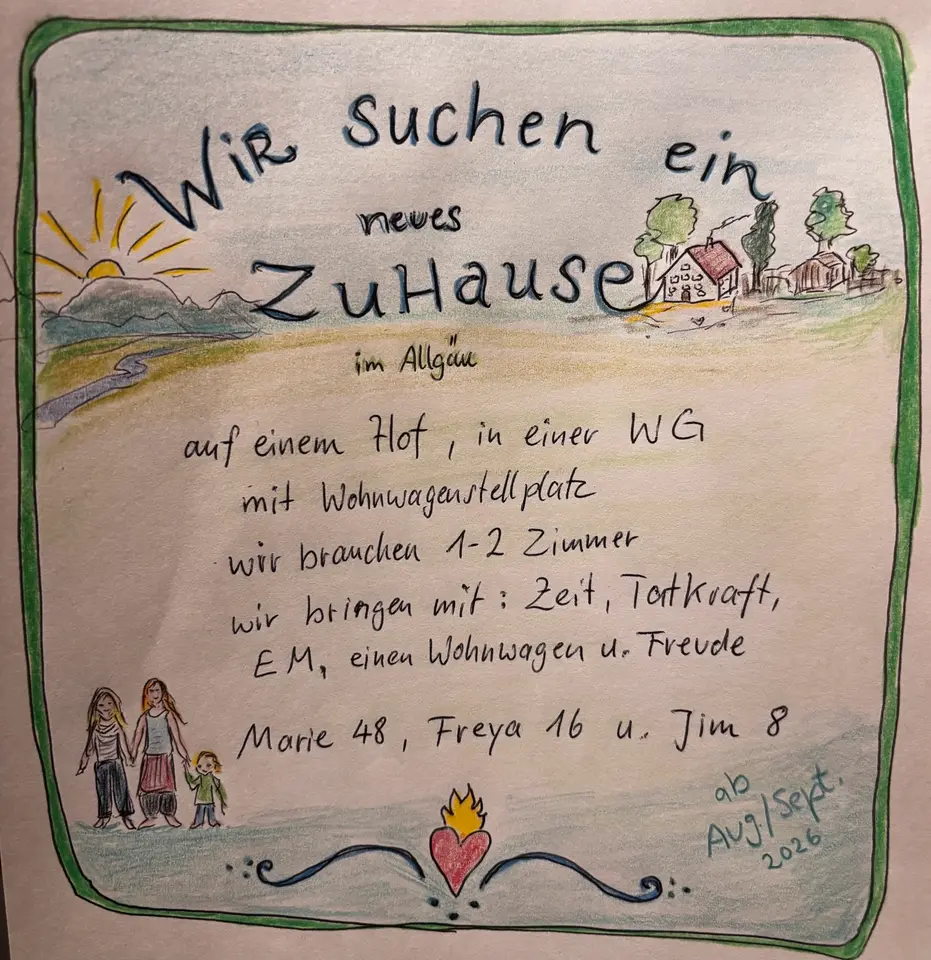 Wir suchen ein
neues
Zuhause
im Allgäu
auf einem Hof, in einer WG
mit Wohnwagenstellplatz
wir brauchen 1-2 Zimmer
wir bringen mit: Zeit, Tatkraft,
EM, einen Wohnwagen u. Freude
Marie 48, Freya 16 u. Jim 8
ab
Aug/Sept.
2026